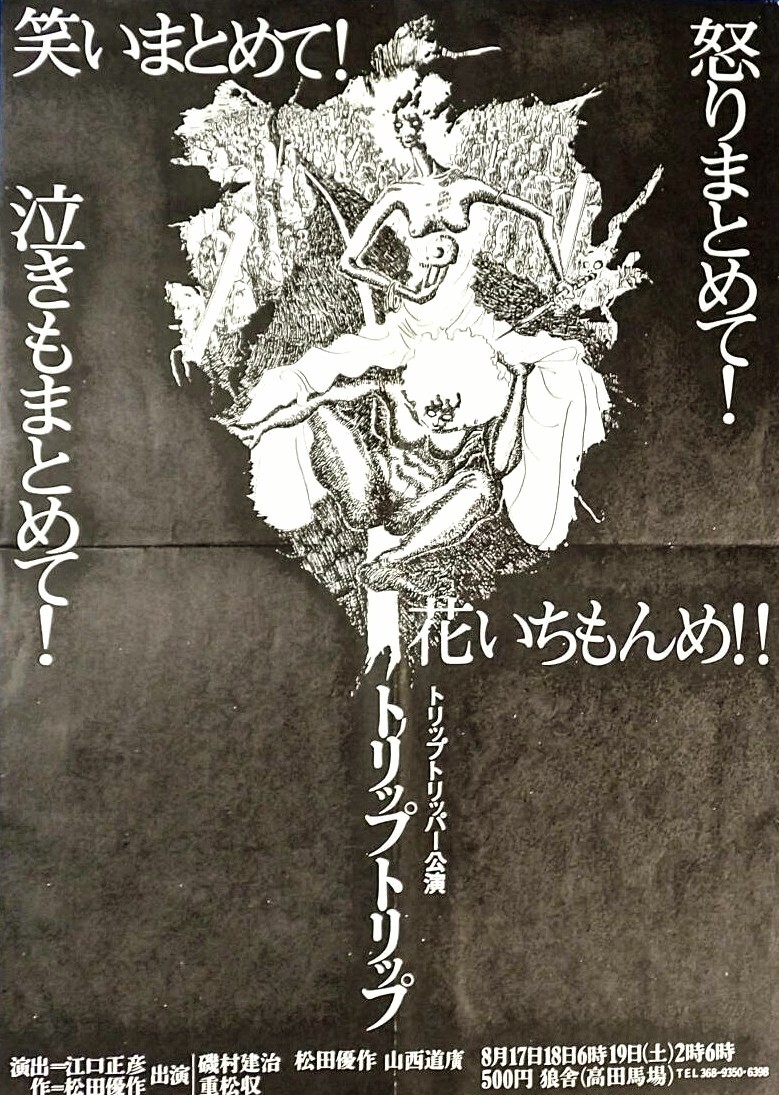 笑いまとめて!
怒りまとめて!
泣きもまとめて!
花いちもんめ!!
トリップトリッパー公演
トリップトリップ
演出=江口正彦
作=松田優作
出演
磯村建治 松田優作 山西道廣
重松収
8月17日18日6時19日(土)2時6時
500円 狼舎(高田馬場) TEL 368-9350・6398